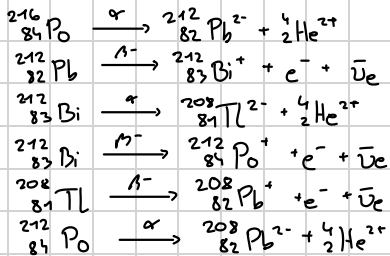 ²¹⁶₈₄Po —α→ ²¹²₈₂Pb²⁻ + ⁴₂He²⁺
²¹²₈₂Pb —β⁻→ ²¹²₈₃Bi⁺ + e⁻ + ν̄e
²¹²₈₃Bi —α→ ²⁰⁸₈₁Tl²⁻ + ⁴₂He²⁺
²¹²₈₃Bi —β⁻→ ²¹²₈₄Po⁺ + e⁻ + ν̄e
²⁰⁸₈₁Tl —β⁻→ ²⁰⁸₈₂Pb⁺ + e⁻ + ν̄e
²¹²₈₄Po —α→ ²⁰⁸₈₂Pb²⁻ + ⁴₂He²⁺